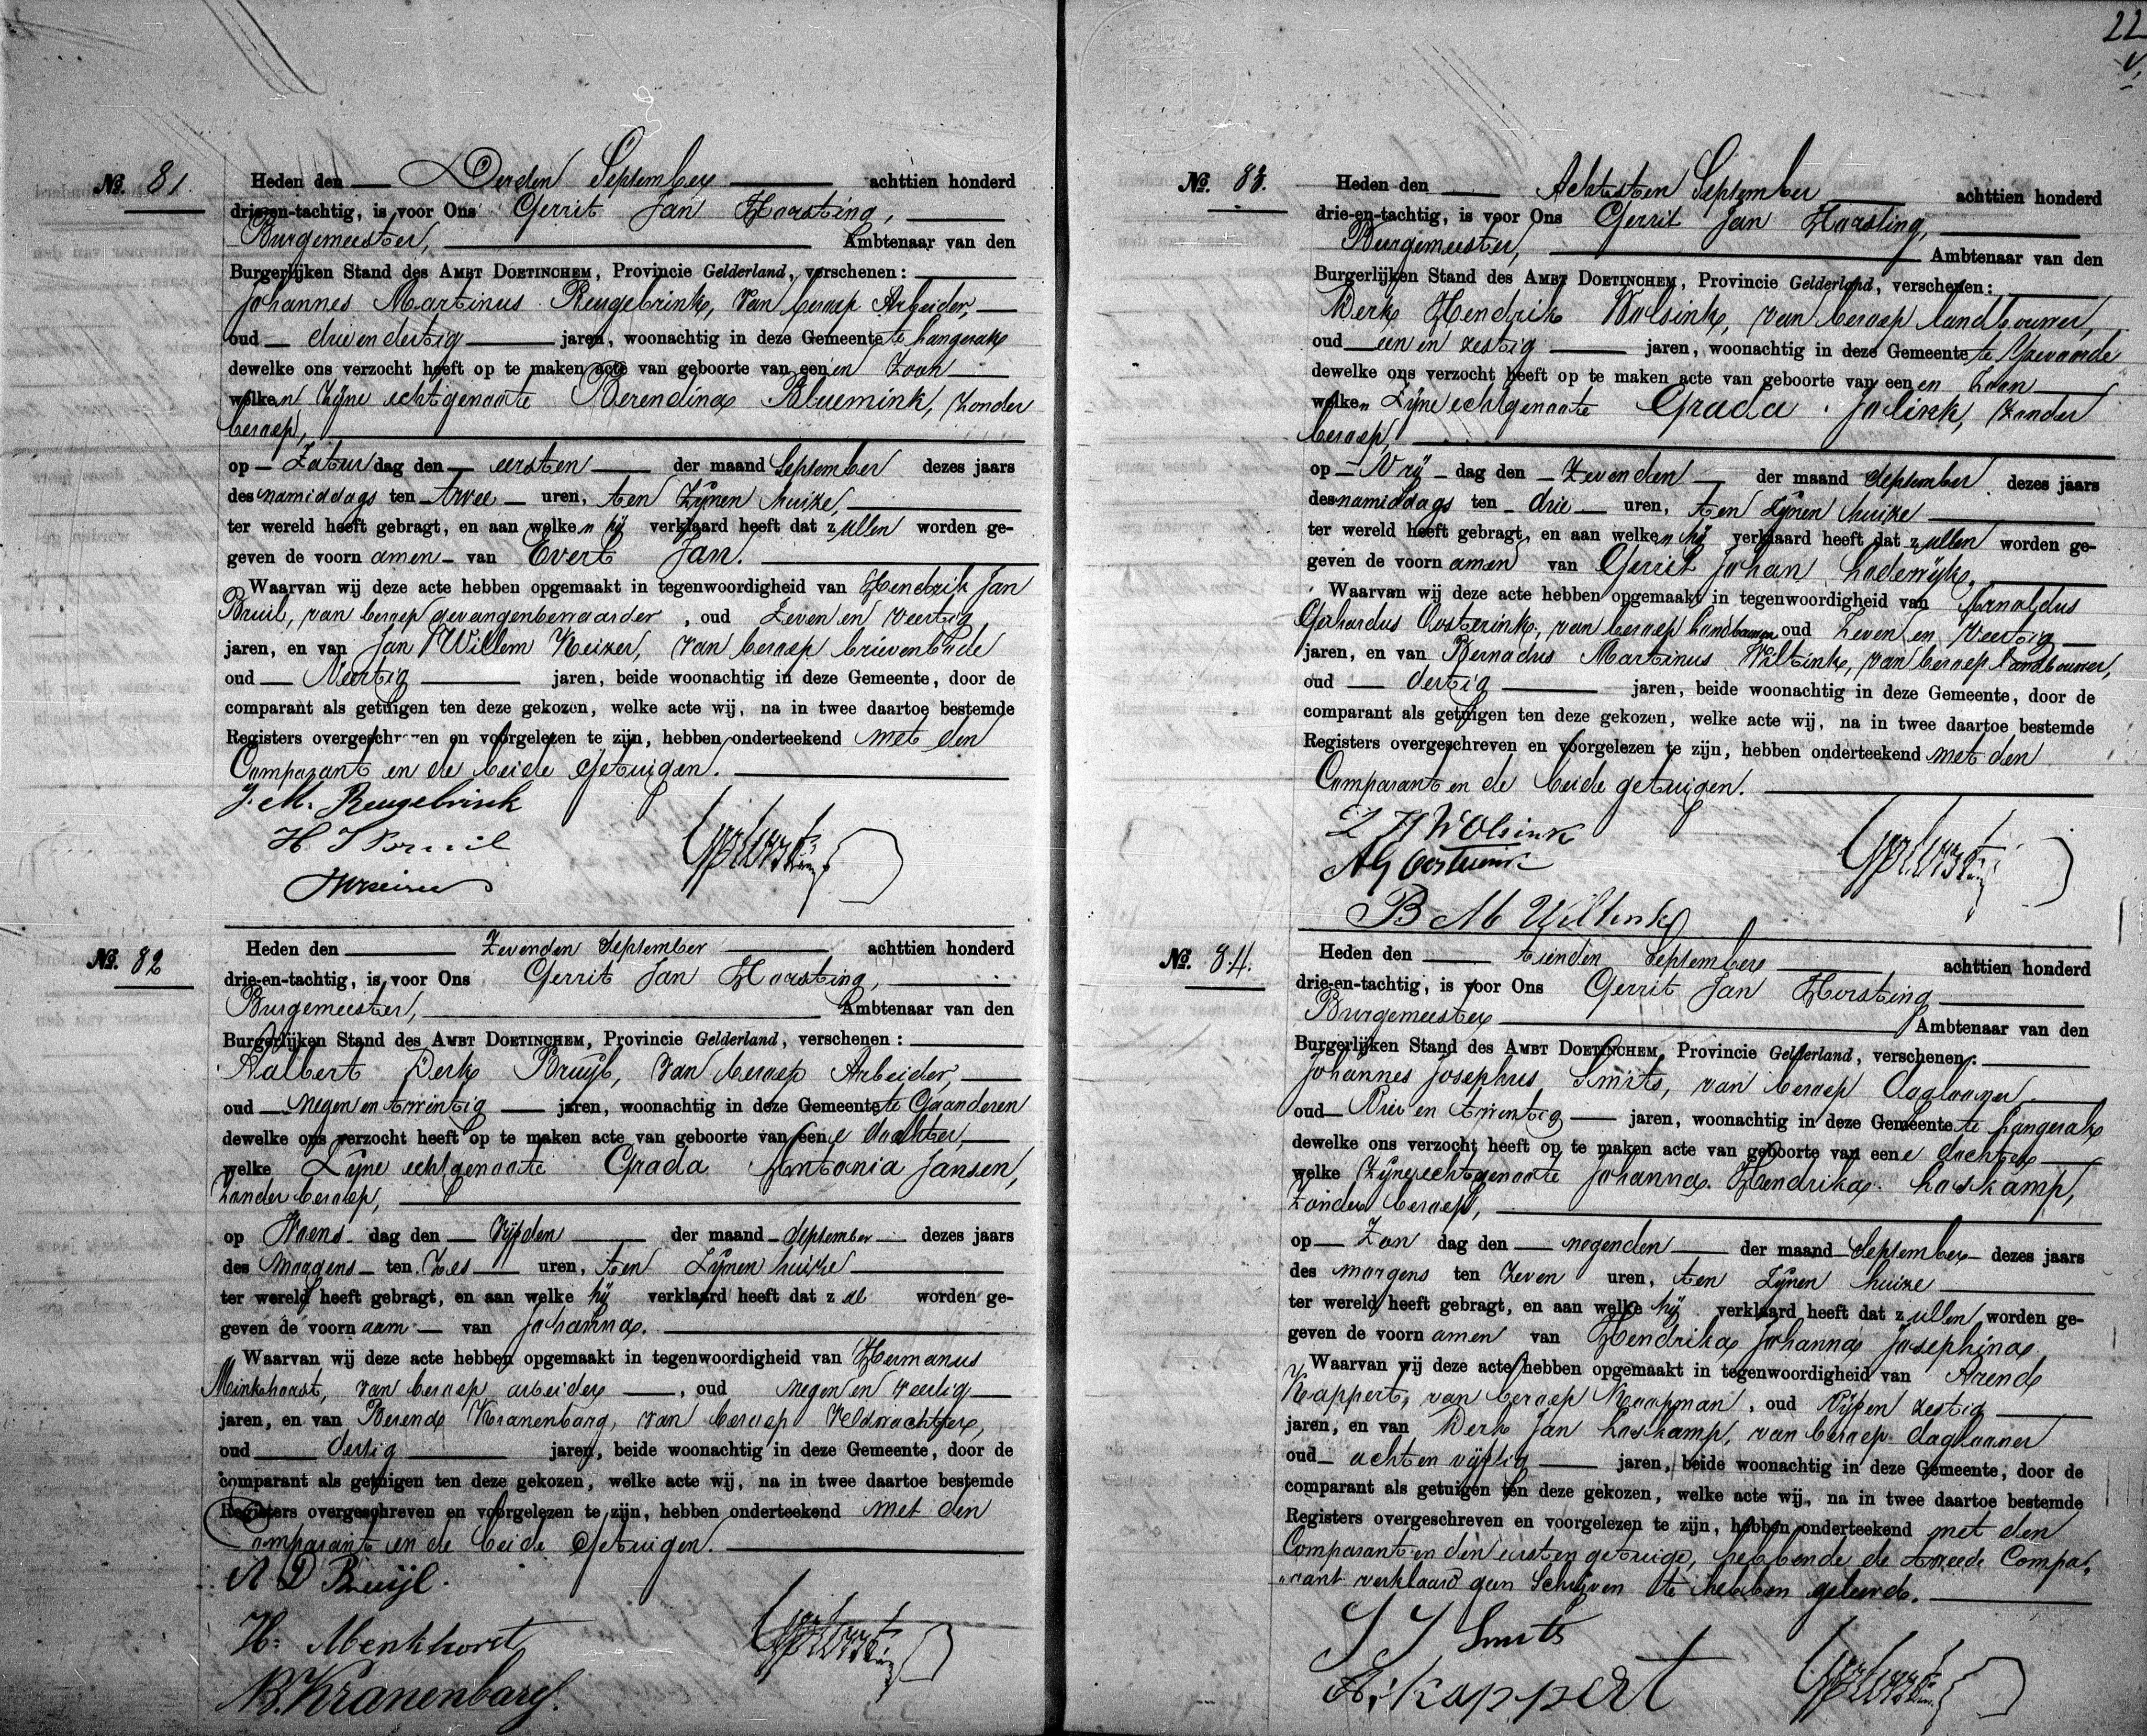 22
No. 81.
Heden den Derden September achttien honderd
drie-en-tachtig, is voor Ons Gerrit Jan Horsting,
Burgemeester, Ambtenaar van den
Burgerlijken Stand des AMBT DOETINCHEM, Provincie Gelderland, verschenen:
Johannes Martinus Reugebrink, van beroep Arbeider,
oud drie en dertig jaren, woonachtig in deze Gemeente te Langerak
dewelke ons verzocht heeft op te maken acte van geboorte van eenen Zoon
welken Zijne echtgenoote Berendina Bluemink, zonder
beroep,
op Zaturdag den eersten der maand September dezes jaars
des namiddags ten twee uren, ten Zijnen huize,
ter wereld heeft gebragt, en aan welken hij verklaard heeft dat zullen worden ge-
geven de voornamen van Evert Jan.
Waarvan wij deze acte hebben opgemaakt in tegenwoordigheid van Hendrik Jan
Bruil, van beroep gevangenbewaarder, oud Zeven en veertig
jaren, en van Jan Willem Keizer, van beroep brievenbode
oud Veertig jaren, beide woonachtig in deze Gemeente, door de
comparant als getuigen ten deze gekozen, welke acte wij, na in twee daartoe bestemde
Registers overgeschreven en voorgelezen te zijn, hebben onderteekend met den
Comparant en de beide getuigen.
J. M. Reugebrink
No. 82
Heden den Zevenden September achttien honderd
drie-en-tachtig, is voor Ons Gerrit Jan Horsting,
Burgemeester, Ambtenaar van den
Burgerlijken Stand des AMBT DOETINCHEM, Provincie Gelderland, verschenen:
Aalbert Derk Bruijl, van beroep Arbeider,
oud negen en twintig jaren, woonachtig in deze Gemeente te Gaanderen
dewelke ons verzocht heeft op te maken acte van geboorte van eene dochter,
welke Zijne echtgenoote Grada Antonia Jansen,
Zonder beroep,
op Woensdag den vijfden der maand September dezes jaars
des morgens ten Zes uren, ten Zijnen huize
ter wereld heeft gebragt, en aan welke hij verklaard heeft dat zal worden ge-
geven de voornaam van Johanna.
Waarvan wij deze acte hebben opgemaakt in tegenwoordigheid van Hermanus
Minkhorst, van beroep arbeider, oud negen en veertig
jaren, en van Berend Kranenbarg, van beroep Veldwachter,
oud dertig jaren, beide woonachtig in deze Gemeente, door de
comparant als getuigen ten deze gekozen, welke acte wij, na in twee daartoe bestemde
Registers overgeschreven en voorgelezen te zijn, hebben onderteekend met den
Comparant en de beide Getuigen.
A D Bruijl.
H. Menkhorst
B. Kranenbarg.
No. 83.
Heden den Achtsten September achttien honderd
drie-en-tachtig, is voor Ons Gerrit Jan Horsting,
Burgemeester, Ambtenaar van den
Burgerlijken Stand des AMBT DOETINCHEM, Provincie Gelderland, verschenen:
Derk Hendrik Wolsink, van beroep landbouwer,
oud een en zestig jaren, woonachtig in deze Gemeente te IJzevoorde
dewelke ons verzocht heeft op te maken acte van geboorte van eenen Zoon
welken Zijne echtgenoote Grada Jolink, zonder
beroep,
op Vrijdag den Zevenden der maand September dezes jaars
des namiddags ten drie uren, ten Zijnen huize
ter wereld heeft gebragt, en aan welken hij verklaard heeft dat zullen worden ge-
geven de voornamen van Gerrit Johan Lodewijk.
Waarvan wij deze acte hebben opgemaakt in tegenwoordigheid van Arnoldus
Gerhardus Oosterink, van beroep landbouwer oud Zeven en Veertig
jaren, en van Bernadus Martinus Wiltink, van beroep landbouwer,
oud dertig jaren, beide woonachtig in deze Gemeente, door de
comparant als getuigen ten deze gekozen, welke acte wij, na in twee daartoe bestemde
Registers overgeschreven en voorgelezen te zijn, hebben onderteekend met den
Comparant en de beide getuigen.
D H Wolsink
A G Oosterink
B M Wiltink
No. 84.
Heden den tienden September achttien honderd
drie-en-tachtig, is voor Ons Gerrit Jan Horsting
Burgemeester Ambtenaar van den
Burgerlijken Stand des AMBT DOETINCHEM, Provincie Gelderland, verschenen:
Johannes Josephus Smits, van beroep daglooner
oud Drie en twintig jaren, woonachtig in deze Gemeente te Langerak
dewelke ons verzocht heeft op te maken acte van geboorte van eene dochter
welke Zijne echtgenoote Johanna Hendrika Loskamp,
Zonder beroep,
op Zondag den negenden der maand September dezes jaars
des morgens ten Zeven uren, ten Zijnen huize
ter wereld heeft gebragt, en aan welke hij verklaard heeft dat zullen worden ge-
geven de voornamen van Hendrika Johanna Josephina
Waarvan wij deze acte hebben opgemaakt in tegenwoordigheid van Arend
Kappert, van beroep Koopman, oud Vijf en zestig
jaren, en van Derk Jan Loskamp, van beroep daglooner
oud acht en vijftig jaren, beide woonachtig in deze Gemeente, door de
comparant als getuigen ten deze gekozen, welke acte wij, na in twee daartoe bestemde
Registers overgeschreven en voorgelezen te zijn, hebben onderteekend met den
Comparant en den eersten getuige, hebbende de tweede Compa„
„rant verklaard geen Schrijven te hebben geleerd.
J J Smits
A. Kappert